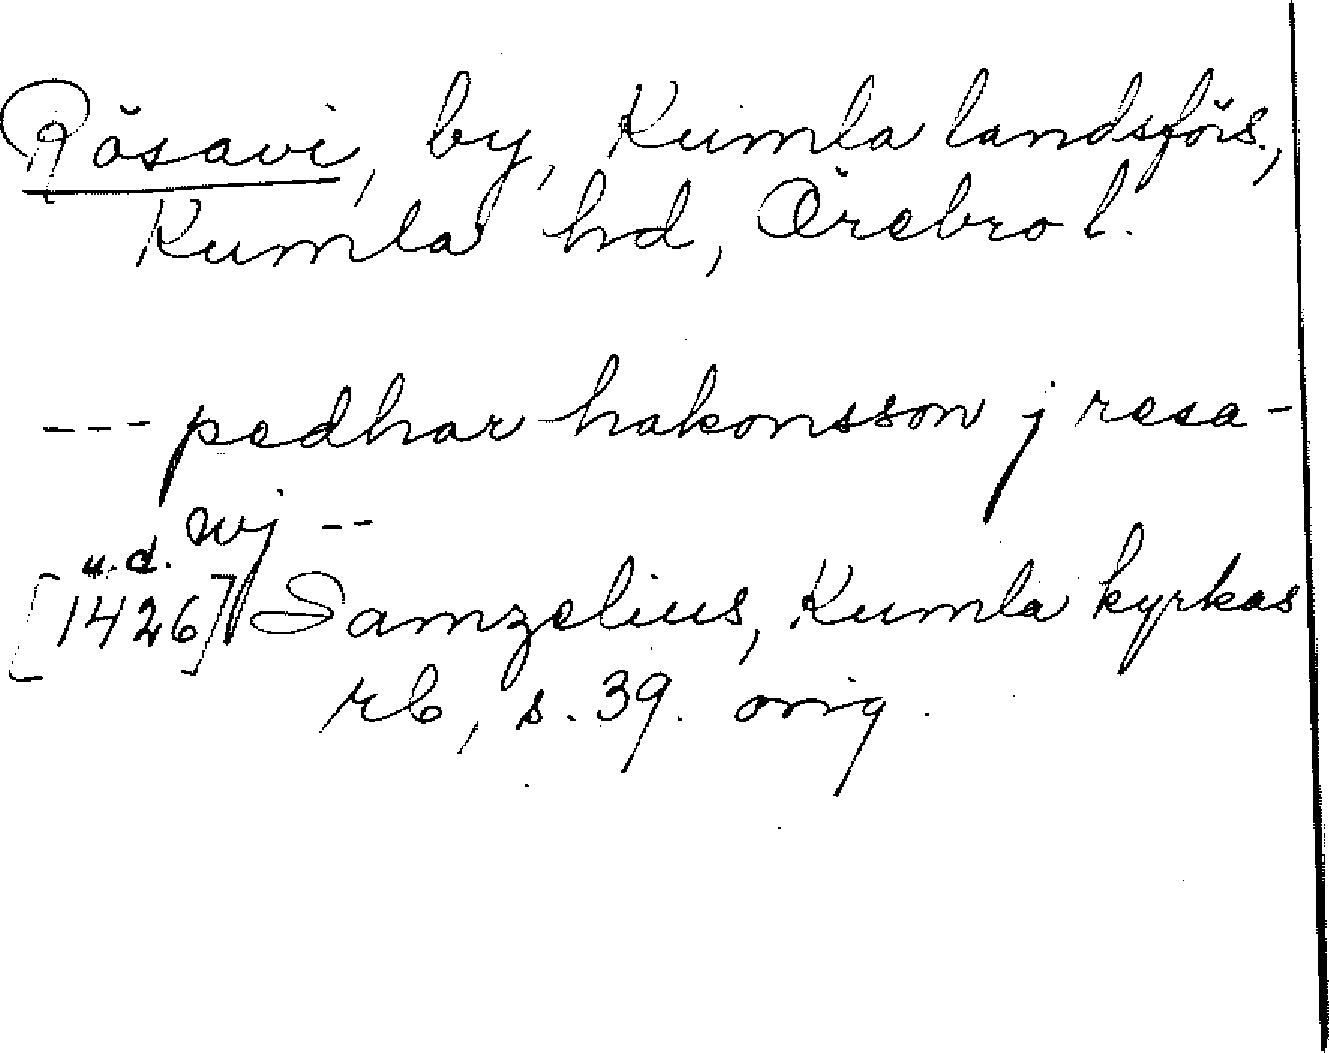 Rösavi, by, Kumla landsförs.,
Kumla hd, Örebro l.
--- pedhar hakonsson j resa-
wj --
u.d.
[1426] Samzelius, Kumla kyrkas
rb, s. 39. orig.